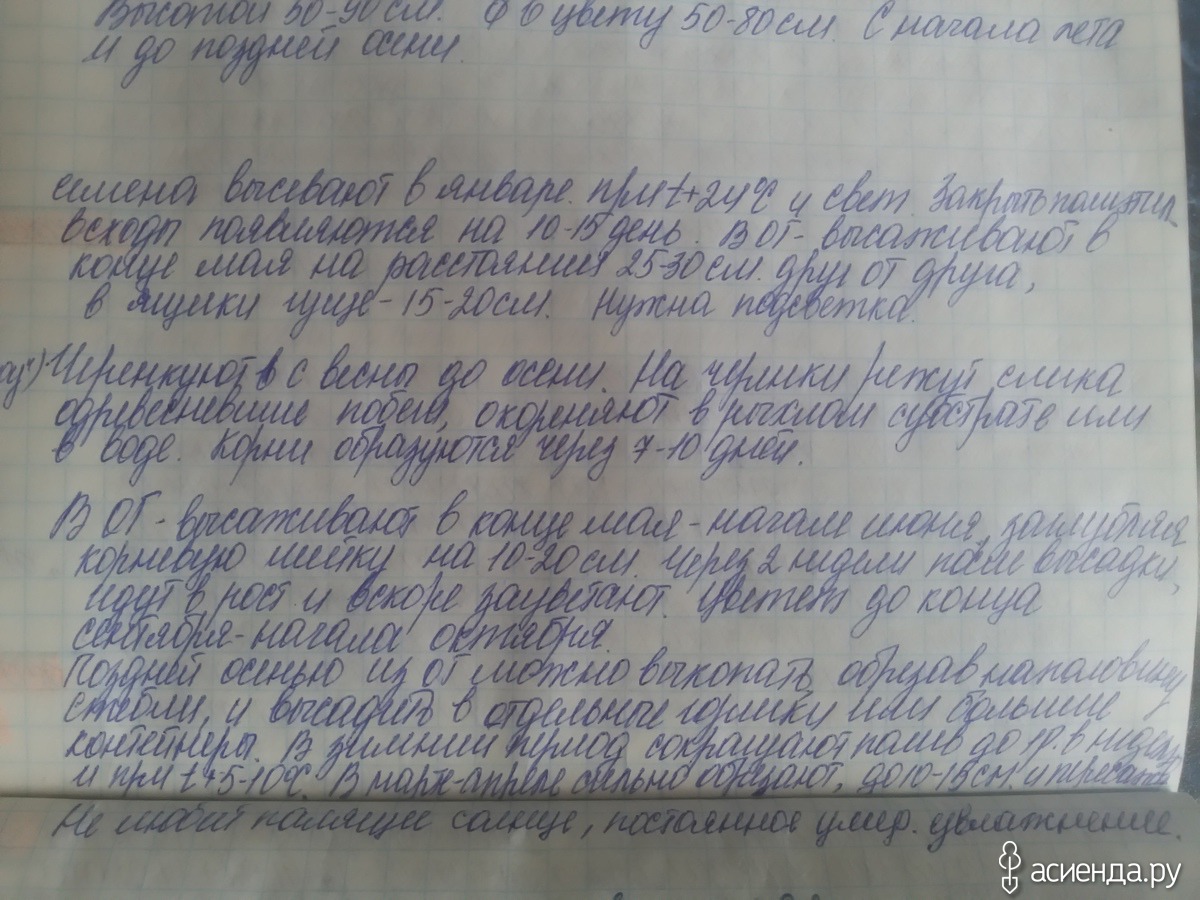 Высотой 50-90см. Ф в цвету 50-80см. С начала лета
и до поздней осени.
семена высевают в январе. при t+24°С и свет. Закрыть
всходы появляются на 10-15 день. В ОГ- высаживают в
конце мая на расстоянии 25-30см. друг от друга,
в ящики гуще-15-20см. Нужна подсветка.
Черенкуют с весны до осени. На черенки режут слегка
одревесневшие побеги, укореняют в рыхлом субстрате или
в воде. Корни образуются через 7-10 дней.
В ОГ- высаживают в конце мая-начале июня, заглубляя
корневую шейку на 10-20см. Через 2 недели после высадки,
идут в рост и вскоре зацветают. Цветет до конца
сентября-начала октября.
Поздней осенью из ОГ можно выкопать, обрезав наполовину
стебли, и высадить в отдельные горшки или большие
контейнеры. В зимний период сокращают полив до 1р. в неделю
и при t+5-10°С. В марте-апреле сильно обрезают, до 10-15см. и
Не любит палящее солнце, постоянное умер. увлажнение.
асиенда.ру